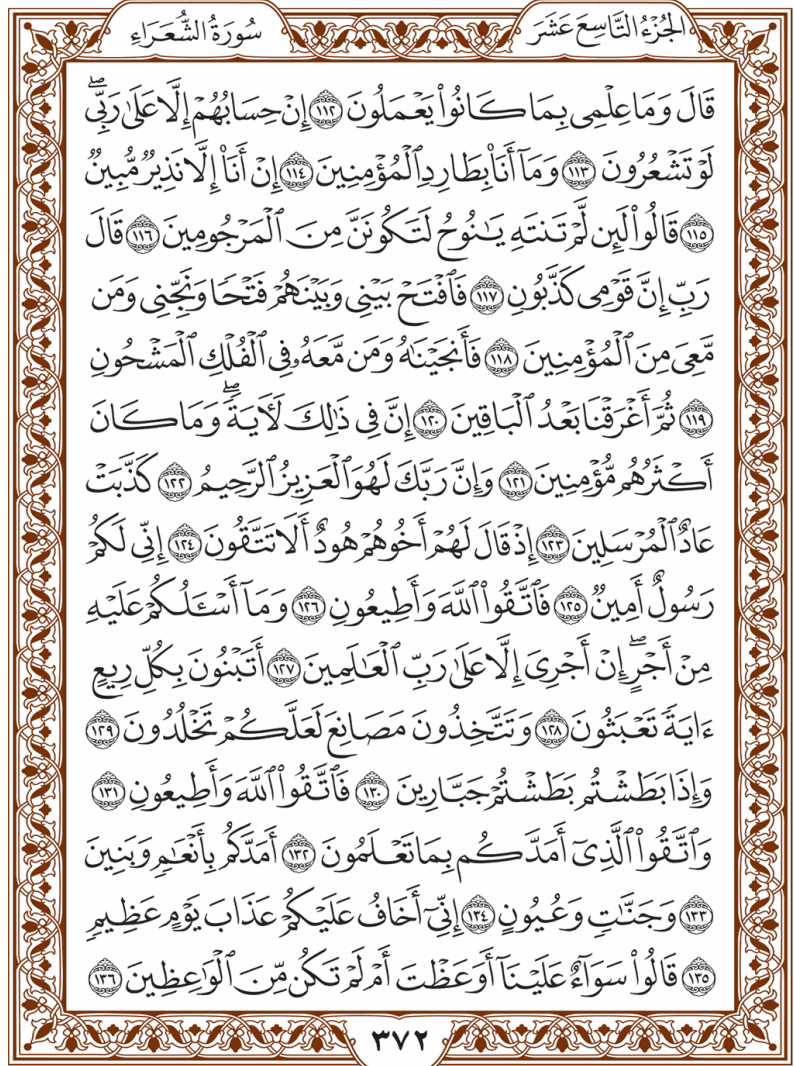 الجُزْءُ التَّاسِعَ عَشَرَ
سُورَةُ الشُّعَرَاءِ
قَالَ وَمَا عِلْمِى بِمَا كَانُوا۟ يَعْمَلُونَ ١١٢ إِنْ حِسَابُهُمْ إِلَّا عَلَىٰ رَبِّى ۖ
لَوْ تَشْعُرُونَ ١١٣ وَمَآ أَنَا۠ بِطَارِدِ ٱلْمُؤْمِنِينَ ١١٤ إِنْ أَنَا۠ إِلَّا نَذِيرٌ مُّبِينٌ
١١٥ قَالُوا۟ لَئِن لَّمْ تَنتَهِ يَـٰنُوحُ لَتَكُونَنَّ مِنَ ٱلْمَرْجُومِينَ ١١٦ قَالَ
رَبِّ إِنَّ قَوْمِى كَذَّبُونِ ١١٧ فَٱفْتَحْ بَيْنِى وَبَيْنَهُمْ فَتْحًا وَنَجِّنِى وَمَن
مَّعِىَ مِنَ ٱلْمُؤْمِنِينَ ١١٨ فَأَنجَيْنَـٰهُ وَمَن مَّعَهُۥ فِى ٱلْفُلْكِ ٱلْمَشْحُونِ
١١٩ ثُمَّ أَغْرَقْنَا بَعْدُ ٱلْبَاقِينَ ١٢٠ إِنَّ فِى ذَٰلِكَ لَـَٔايَةً ۖ وَمَا كَانَ
أَكْثَرُهُم مُّؤْمِنِينَ ١٢١ وَإِنَّ رَبَّكَ لَهُوَ ٱلْعَزِيزُ ٱلرَّحِيمُ ١٢٢ كَذَّبَتْ
عَادٌ ٱلْمُرْسَلِينَ ١٢٣ إِذْ قَالَ لَهُمْ أَخُوهُمْ هُودٌ أَلَا تَتَّقُونَ ١٢٤ إِنِّى لَكُمْ
رَسُولٌ أَمِينٌ ١٢٥ فَٱتَّقُوا۟ ٱللَّهَ وَأَطِيعُونِ ١٢٦ وَمَآ أَسْـَٔلُكُمْ عَلَيْهِ
مِنْ أَجْرٍ ۖ إِنْ أَجْرِىَ إِلَّا عَلَىٰ رَبِّ ٱلْعَـٰلَمِينَ ١٢٧ أَتَبْنُونَ بِكُلِّ رِيعٍ
ءَايَةً تَعْبَثُونَ ١٢٨ وَتَتَّخِذُونَ مَصَانِعَ لَعَلَّكُمْ تَخْلُدُونَ ١٢٩
وَإِذَا بَطَشْتُم بَطَشْتُمْ جَبَّارِينَ ١٣٠ فَٱتَّقُوا۟ ٱللَّهَ وَأَطِيعُونِ ١٣١
وَٱتَّقُوا۟ ٱلَّذِىٓ أَمَدَّكُم بِمَا تَعْلَمُونَ ١٣٢ أَمَدَّكُم بِأَنْعَـٰمٍ وَبَنِينَ
١٣٣ وَجَنَّـٰتٍ وَعُيُونٍ ١٣٤ إِنِّىٓ أَخَافُ عَلَيْكُمْ عَذَابَ يَوْمٍ عَظِيمٍ
١٣٥ قَالُوا۟ سَوَآءٌ عَلَيْنَآ أَوَعَظْتَ أَمْ لَمْ تَكُن مِّنَ ٱلْوَٰعِظِينَ ١٣٦
٣٧٢